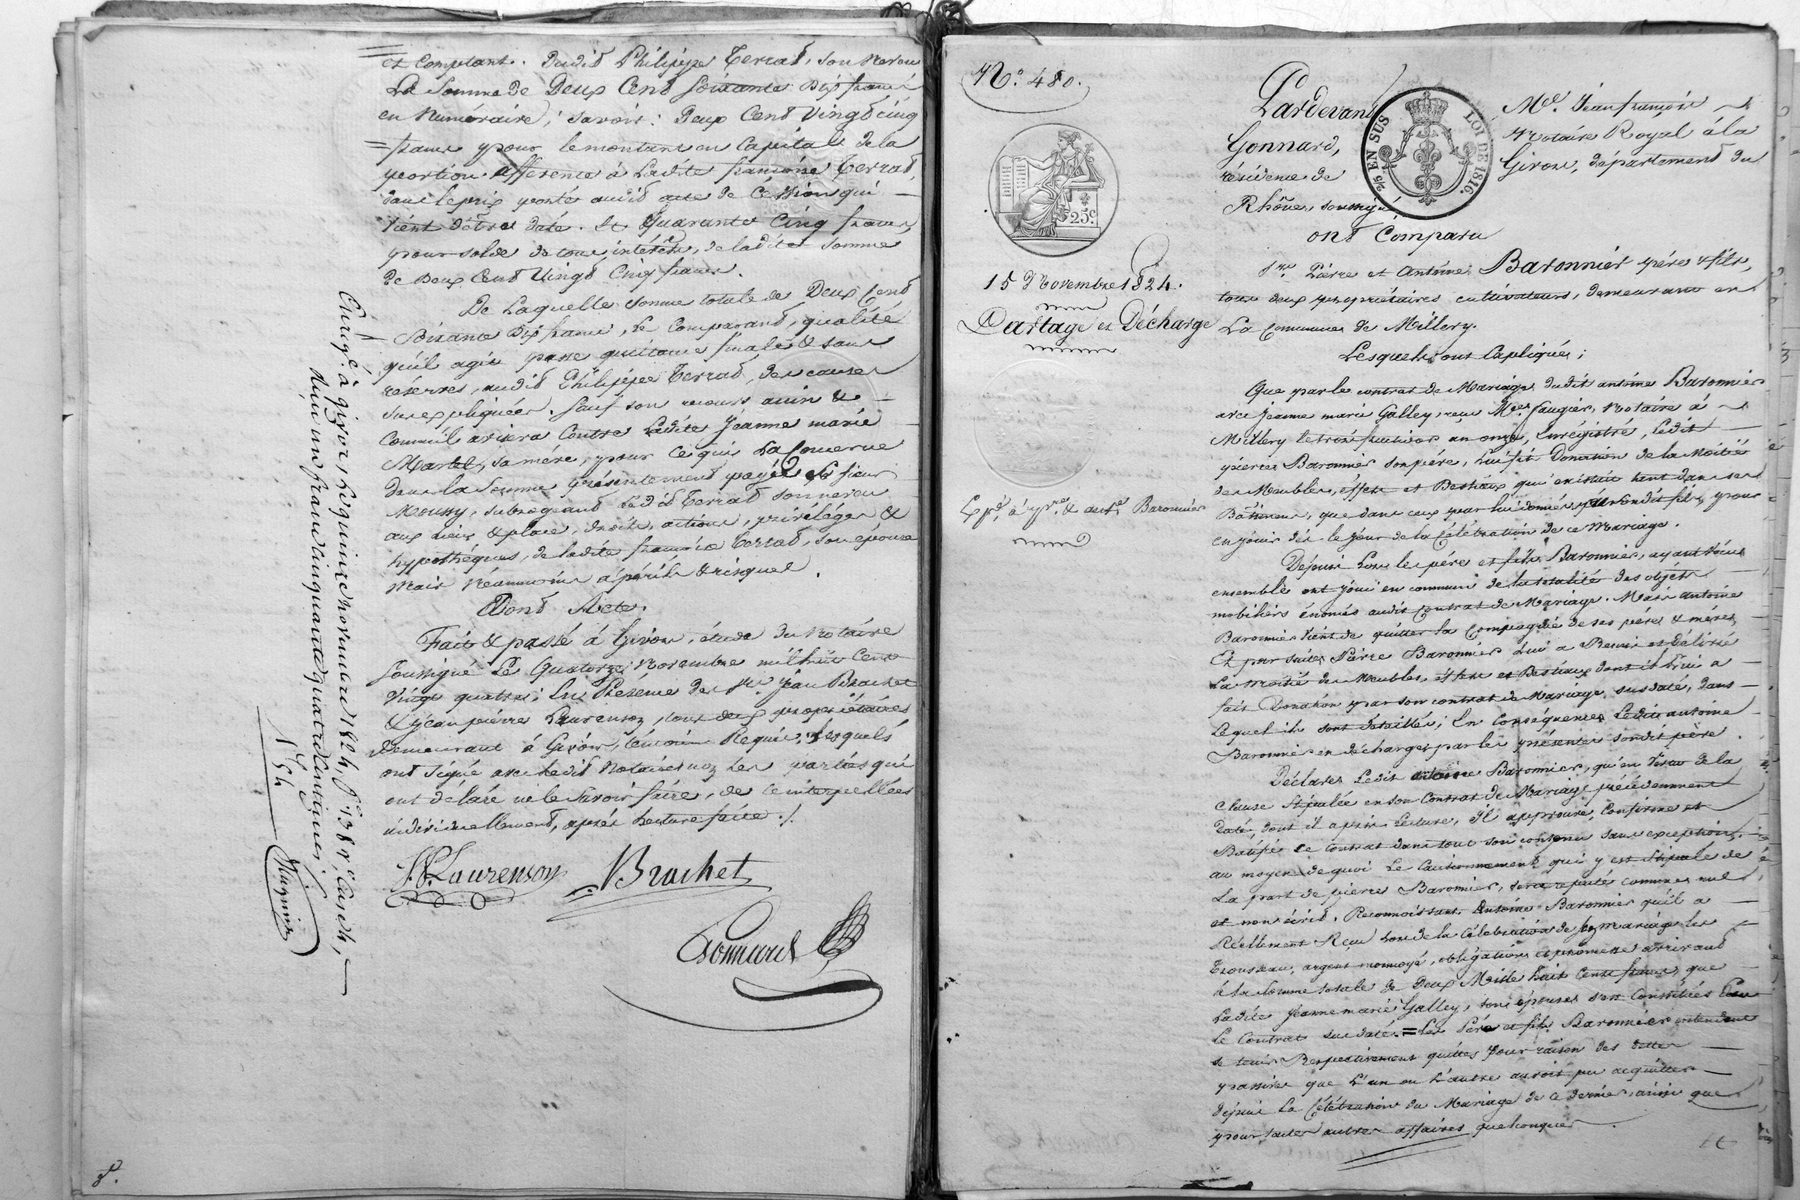 et Comptant. Dudit Philippe Terrat, son neveu
La Somme de Deux Cent soixante Dix francs
en Numéraire; savoir: Deux Cent Vingt cinq
francs pour le montant en Capital de la
portion afférente à Ladite françoise Terrat,
dans le prix porté audit acte de Cession qui
vient d'être daté. Et Quarante Cinq francs,
pour solde de tous intérêts, de ladite somme
de Deux Cent Vingt Cinq francs.
De Laquelle somme totale de Deux Cent
Soixante Dix francs, le Comparant, qualité
qu'il agit passe quittance finale & sans
réserves, audit Philippe Terrat, des causes
sus expliquées. Sauf son recours ainsi &
Comme il avisera Contre Ladite Jeanne marie
Martel, sa mère, pour Ce qui La Concerne
dans la somme présentement payée. Le sieur
Moussy, subrogeant Ledit Terrat son neveu
aux Lieu & place, droits, actions, privilèges &
hypothèques, de ladite françoise Terrat, son épouse
Mais Néanmoins à périls & risques.
Dont Acte.
Fait & passé à Givors, étude du Notaire
soussigné Le Quatorze Novembre mil huit Cent
Vingt quatre; En Présence de Srs. Jean Brachet
& Jean pierre Laurenson, tous deux propriétaires
Demeurant à Givors, témoins Requis; Lesquels
ont signé avec ledit Notaire, non les parties qui
ont déclaré ne le savoir faire, de ce interpellées
individuellement, après Lecture faite./.
J.P. Laurenson Brachet
Gonnard
Enrégé. à givors, le quinze novembre 1824, fo. 138 ro. Case 4,
Reçu un franc cinquante quatre centimes.
N° 480.
25 c.
2/5 EN SUS
LOI DE 1816.
15 Novembre 1824.
Partage et Décharge
Expé. à prre. & antne. Baronnier
Pardevant Me. Jean françois
Gonnard, Notaire Royal à la
résidence de Givors, département du
Rhône, soussigné
ont Comparu
Srs. Pierre et Antoine Baronnier père & fils,
tous deux propriétaires cultivateurs, demeurant en
La Commune de Millery.
Lesquels ont Expliqué;
Que par le contrat de Mariage dudit antoine Baronnier
avec Jeanne marie Galley, reçu Me. faugier, Notaire à
Millery le trois fructidor an onze, Enrégistré, Ledit
pierre Baronnier son père, lui fit Donation de la Moitié
des Meubles, effets et Bestiaux qui existoient tant dans ses
Bâtimens, que dans ceux par lui donnés à sondit fils, pour
en jouir dès le jour de la Célébration de ce Mariage.
Depuis Lors les père et fils Baronnier, ayant vécus
ensemble ont joui en commun de la totalité des objets
mobiliers énoncés audit Contrat de Mariage. Mais antoine
Baronnier vient de quitter la Compagnie de ses père & mère,
Et par suite Pierre Baronnier lui a Remis et délivré
La moitié des Meubles, effets et Bestiaux dont il lui a
fait Donation par son contrat de Mariage, susdaté, dans
Lequel ils sont détaillés; En Conséquence Ledit antoine
Baronnier en décharge par les présentes sondit père.
Déclare Ledit antoine Baronnier, qu'en vertu de la
clause stipulée en son Contrat de Mariage précédemment
Daté, dont il a pris Lecture, il approuve, Confirme et
Ratifie Le Contrat dans tout son contenu sans exception,
au moyen de quoi Le Cautionnement qui y est stipulé de
La part de pierre Baronnier, sera réputé comme nul
et non écrit. Reconnoissant Antoine Baronnier qu'il a
Réellement Reçu lors de la Célébration de son mariage les
trousseau, argent monnoyé, obligations et promesse arrivant
à la somme totale de Deux Mille huit Cents francs, que
Ladite Jeanne marie Galley, son épouse s'est Constituée
Le Contrat susdaté. = Les Père et fils Baronnier entendent
se tenir Respectivement quittes pour raison des dettes
passives que L'un ou L'autre auroit pu acquitter
depuis La Célébration du Mariage de ce dernier, ainsi que
pour toutes autres affaires quelconques.